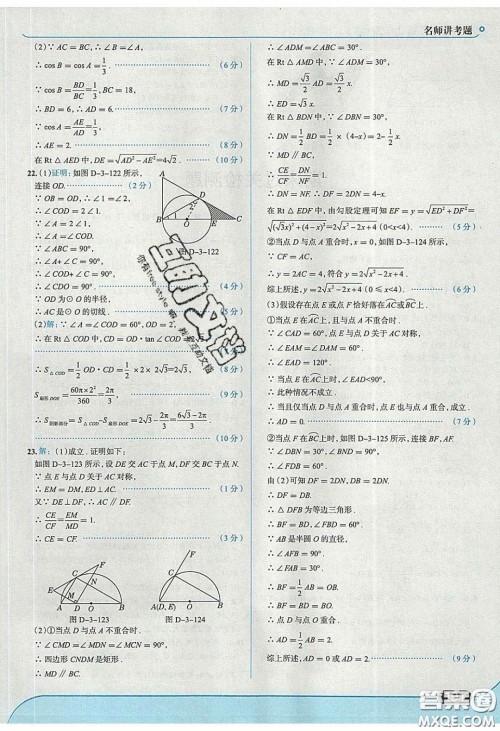 名师讲考题
(2)∵ AC = BD, ∴ AB = BC.
∴ cos B = cos A = 1/3.(6 分)
∵ cos B = BD/BC = 1/3, BC = 18,
∴ BD = 6, ∴ AD = 6.(7 分)
∵ cos A = AE/AD = 1/3,
∴ AE = 2.(8 分)
在 Rt △ AED 中, DE = √(AD² - AE²) = 4√2.(10 分)
22.(1)证明: 如图 D-3-122 所示,
连接 OD.(2 分)
∵ OB = OD, ∴ ∠1 = ∠B.
∴ ∠COD = 2∠1.
∵ ∠A = 2∠1,
∴ ∠A = ∠COD.
∵ ∠ABC = 90°,
∴ ∠A + ∠C = 90°.
∴ ∠COD + ∠C = 90°.
∴ ∠ODC = 90°.
∵ OD 为⊙O 的半径,
∴ AC 是⊙O 的切线.(5 分)
图 D-3-122
(2)解: ∵ ∠A = ∠COD = 60°, OD = 2,
∴ 在 Rt △ COD 中, CD = OD · tan∠COD
∴ S△COD = 1/2 OD · CD = 1/2 × 2 × 2√3 = 2√3.(8 分)
S扇形 DOE = 60π×2²/360 = 2π/3,(9 分)
∴ S阴影部分 = S△COD - S扇形 DOE = 2√3 - 2π/3 = (6√3-2π)/3.
(10 分)
23.解: (1)成立. 证明如下:
如图 D-3-123 所示, 设 DE 交 AC 于点 M, DF 交 BC 于点 N.
∵ 点 E 与点 D 关于 AC 对称,
∴ EM = DM, ED⊥AC.(1 分)
又∵ DE⊥DF, ∴ AC ∥ DF.
∴ CE/CF = EM/MD = 1.
∴ CE = CF.(3 分)
图 D-3-123
图 D-3-124
(2)①当点 D 与点 A 不重合时.
∵ ∠CMD = ∠MDN = ∠MCN = 90°,
∴ 四边形 CNDM 是矩形.
∴ MD ∥ BC.
∴ ∠ADM = ∠ABC = 30°.
在 Rt △ AMD 中, ∵ ∠ADM = 30°.
∴ MD = √3/2 AD = √3/2 x.
在 Rt △ BDN 中, ∵ ∠DBN = 30°.
∴ DN = 1/2 BD = 1/2 × (4-x) = 2 - 1/2 x.
∵ CE/CF = DN/NF = 1.
∴ DN = NF.
在 Rt △ EDF 中, 由勾股定理可知 EF = y = √(ED²+DF²) =
√((√3x)²+(4-x)²) = 2√(x²-2x+4)(0<x≤4).
②当点 D 与点 A 重合时, x = 0, 如图 D-3-124 所示,
∵ CF = AC,
∴ y = 2AC = 4, 符合 y = 2√(x²-2x+4).
综上所述, y = 2√(x²-2x+4)(0≤x≤4).(6 分)
(3)假设存在点 E 或点 F 恰好落在AC或BC上.
①当点 E 在AC上时, 且与点 A 不重合时.
∵ 点 E 与点 D 关于 AC 对称,
∵ ∠CAD = 60°, 点 E 与点 D 关于 AC 对称.
∴ ∠EAM = ∠DAM = 60°.
∴ ∠EAD = 120°.
∵ 当点 E 在AC上时, ∠EAD<90°,
∴ 此种情况不成立.
∴ 当且仅当点 E 与点 A 重合时, 点 E 在AC上.
∴ 当点 E 与点 A 重合时, 点 D 也与点 A 重合.
∴ AD = 0.
②当点 F 在BC上时, 如图 D-3-125 所示, 连接 BF, AF.
∵ BC ⊥ DF,
由(2)可知 DN = NF,
∴ BF = DB.
∴ △ DFB 为等边三角形.
∴ ∠FBD = 60°.
∵ AB 是半圆 O 的直径,
∴ ∠AFB = 90°.
∴ ∠FAB = 30°.
∴ BF = 1/2 AB = OB.
∴ BF = BD.
∴ OB = BD.
∴ AD = 1/2 AB = 2.
综上所述, AD = 0 或 AD = 2.(9 分)
答案圈
MXQE.COM